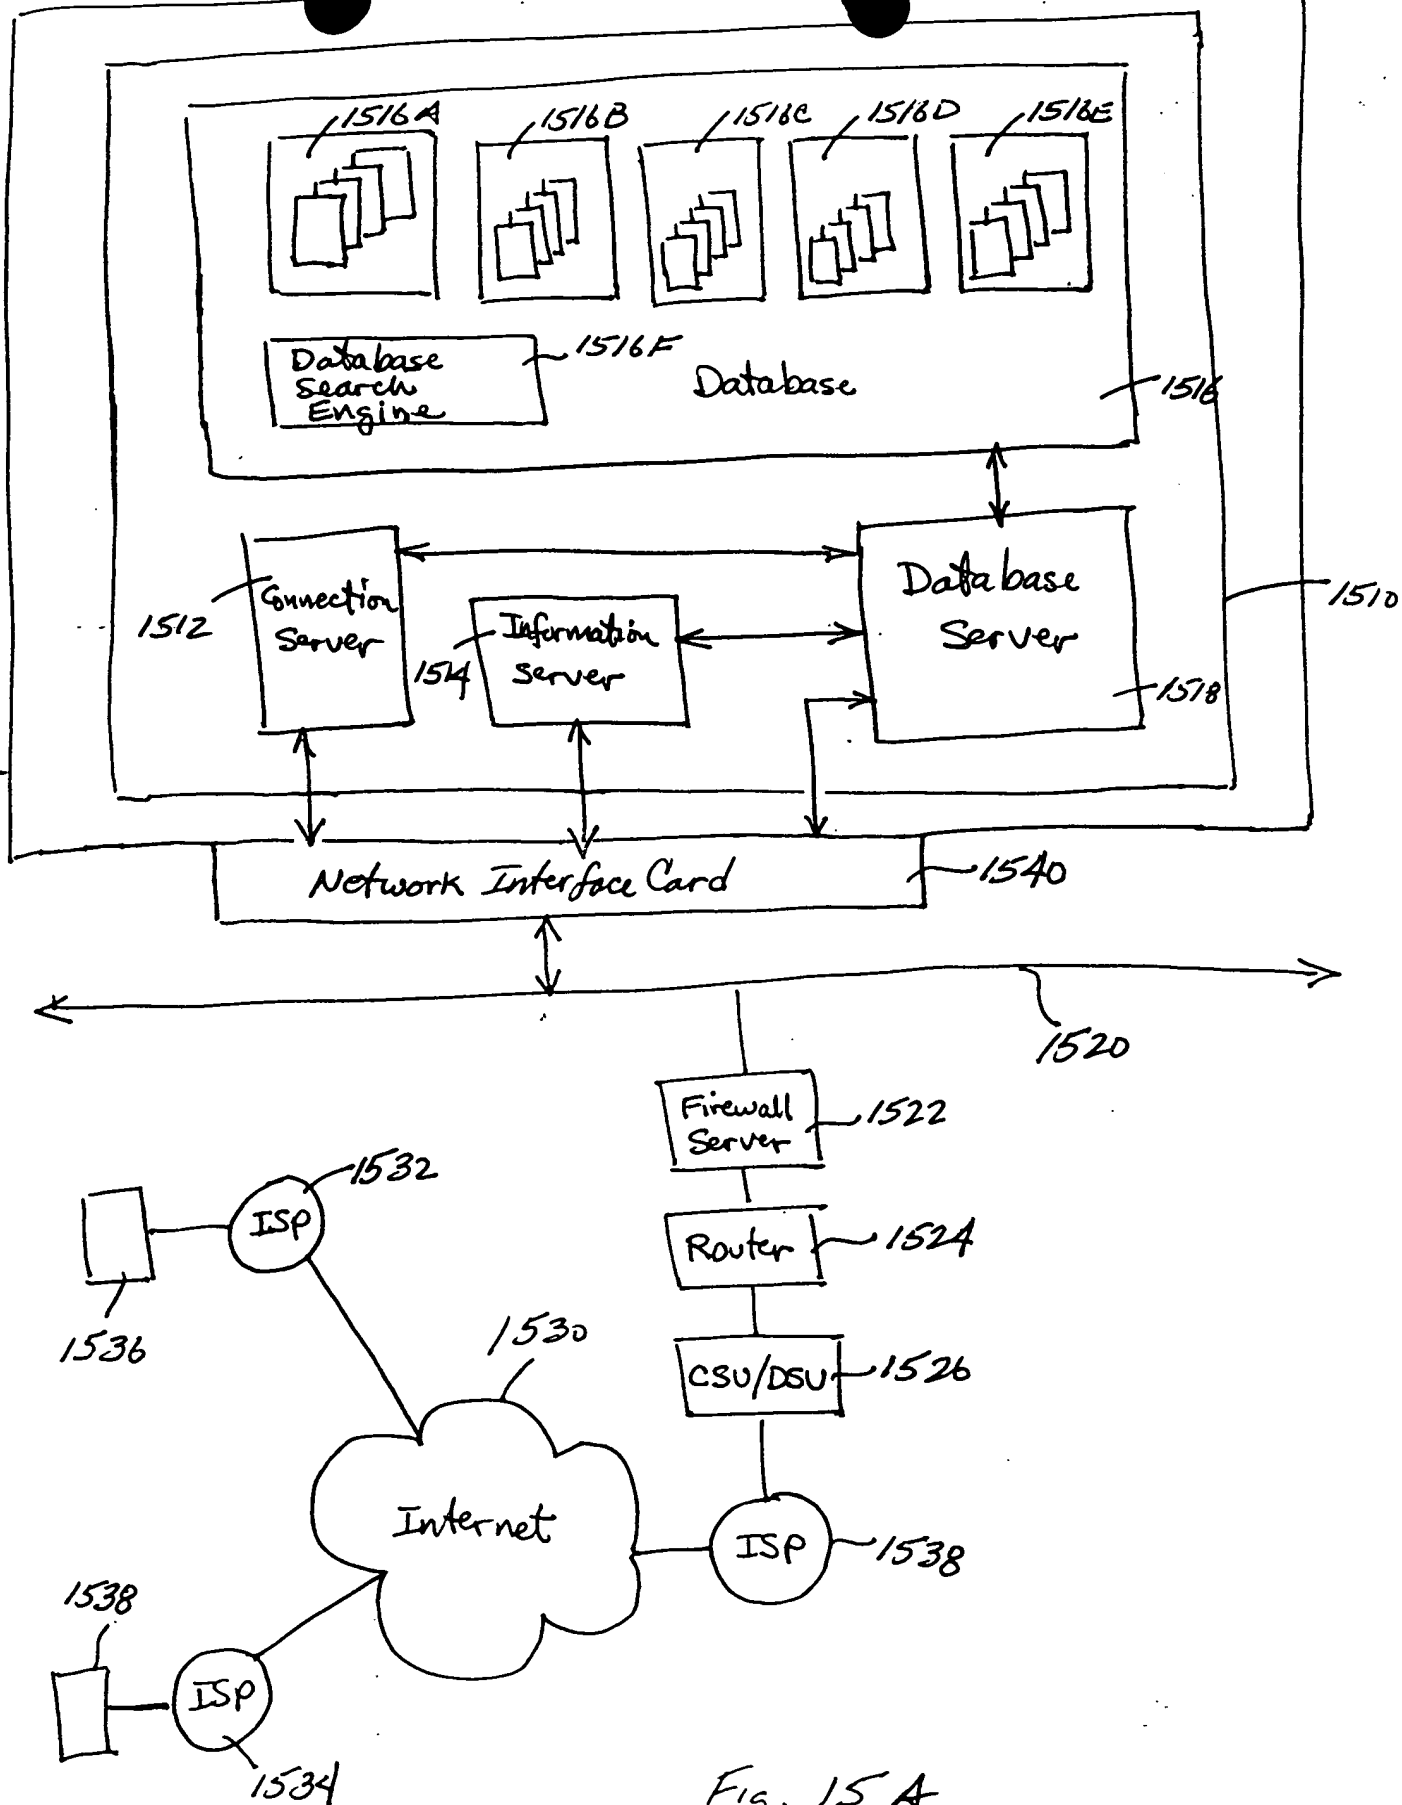 1516A
1516B
1516C
1516D
1516E
Database
Search
Engine
1516F
Database
1516
1512
Connection
Server
1514
Information
Server
Database
Server
1518
1510
Network Interface Card
1540
1520
Firewall
Server
1522
ISP
1532
1536
Router
1524
1530
CSU/DSU
1526
Internet
ISP
1538
1538
ISP
1534
Fig. 15A